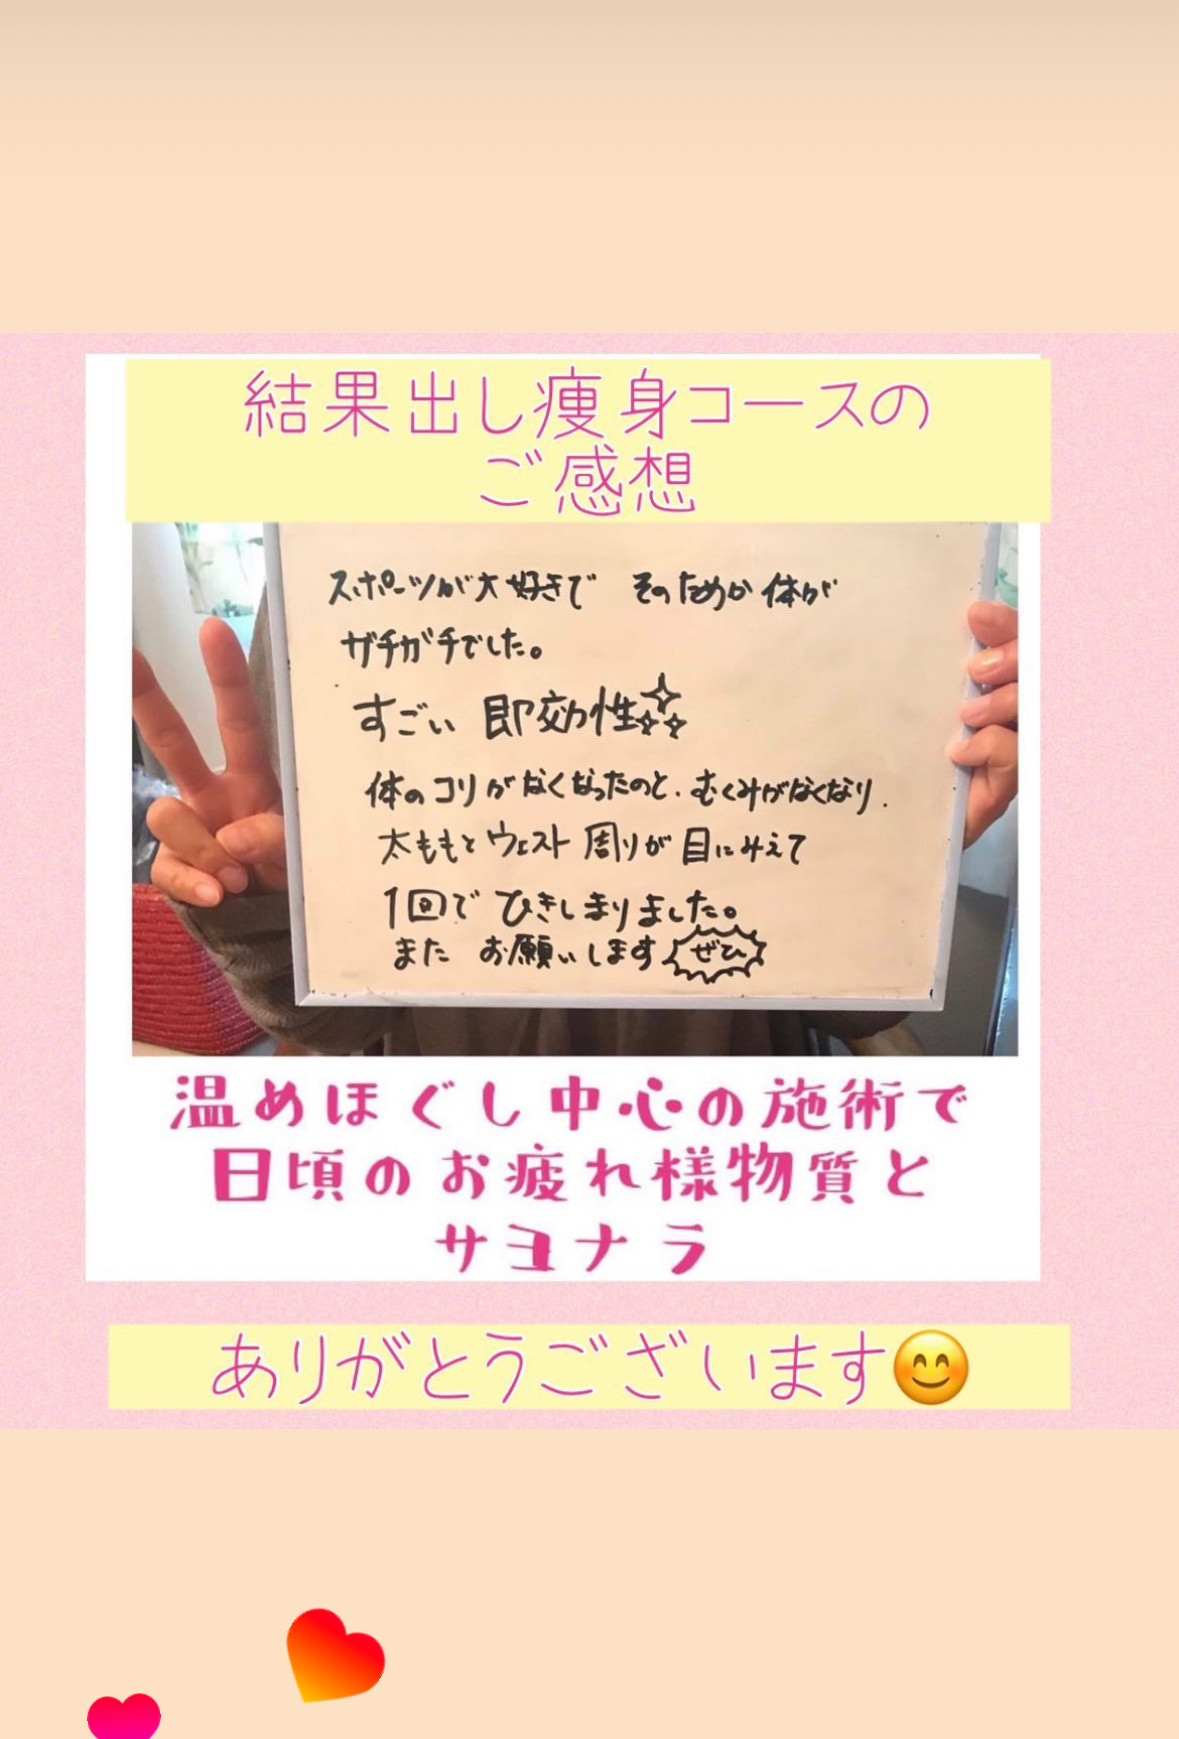 結果出し痩身コースの
ご感想
スポーツが大好きで そのためか 体が
ガチガチでした。
すごい 即効性
体のコリがなくなったのと、むくみがなくなり、
太ももと ウェスト 周りが 目にみえて
1回で ひきしまりました。
また お願いします ぜひ
温めほぐし中心の施術で
日頃のお疲れ様物質と
サヨナラ
ありがとうございます😊